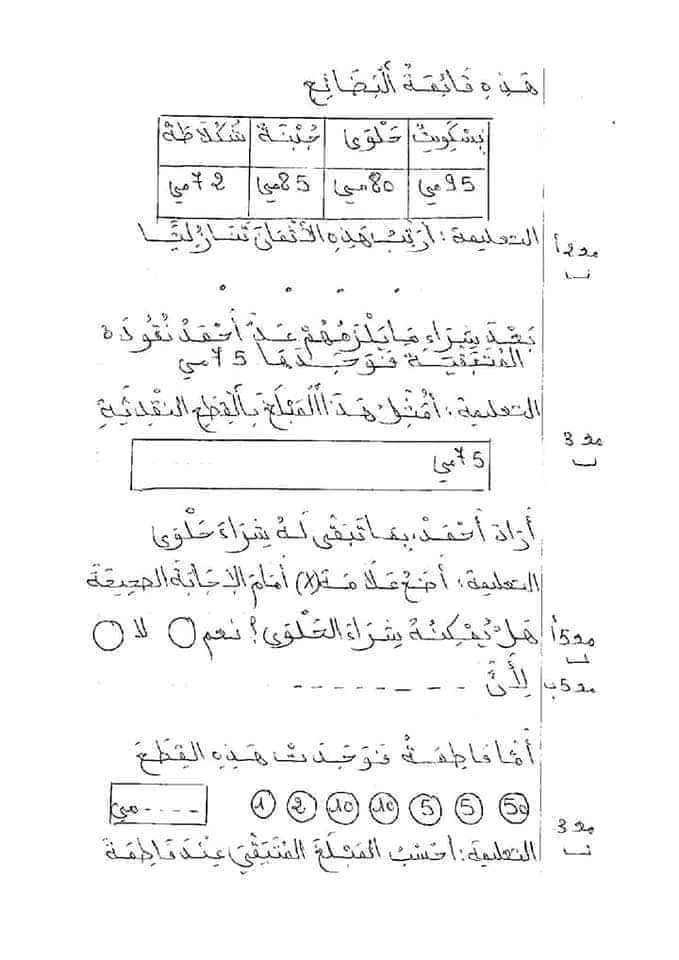 هَذِهِ قَائِمَةُ ٱلْبَضَائِعِ
بِسْكُوِيتٌ حَلْوَى جُبْنَةٌ شُكُلَاطَةٌ
95مي 80مي 85مي 72مي
التعليمة: أُرَتِّبُ هَذِهِ الْأَثْمَانَ تَنَازُلِيًّا
مع2أ
. . . .
بَعْدَ شِرَاءِ مَا يَلْزَمُهُمْ عَدَّ أَحْمَدُ نُقُودَهُ
الْمُتَبَقِّيَةَ فَوَجَدَهَا 75مي
التعليمة: أُمَثِّلُ هَذَا الْمَبْلَغَ بِالْقِطَعِ النَّقْدِيَّةِ
مع3ب
75مي
أَرَادَ أَحْمَدُ بِمَا تَبَقَّى لَهُ شِرَاءَ حَلْوَى
التعليمة: أَضَعُ عَلَامَةَ (X) أَمَامَ الْإِجَابَةِ الصَّحِيحَةِ
مع5أ هَلْ يُمْكِنُهُ شِرَاءَ الْحَلْوَى؟ نعم لا
مع5ب لِأَنَّ - - - - - - - -
أَمَّا فَاطِمَةُ فَوَجَدَتْ هَذِهِ الْقِطَعَ
50 5 5 10 10 2 1 ....مي
مع3ب
التعليمة: أَحْسُبُ الْمَبْلَغَ الْمُتَبَقِّيَ عِنْدَ فَاطِمَةَ